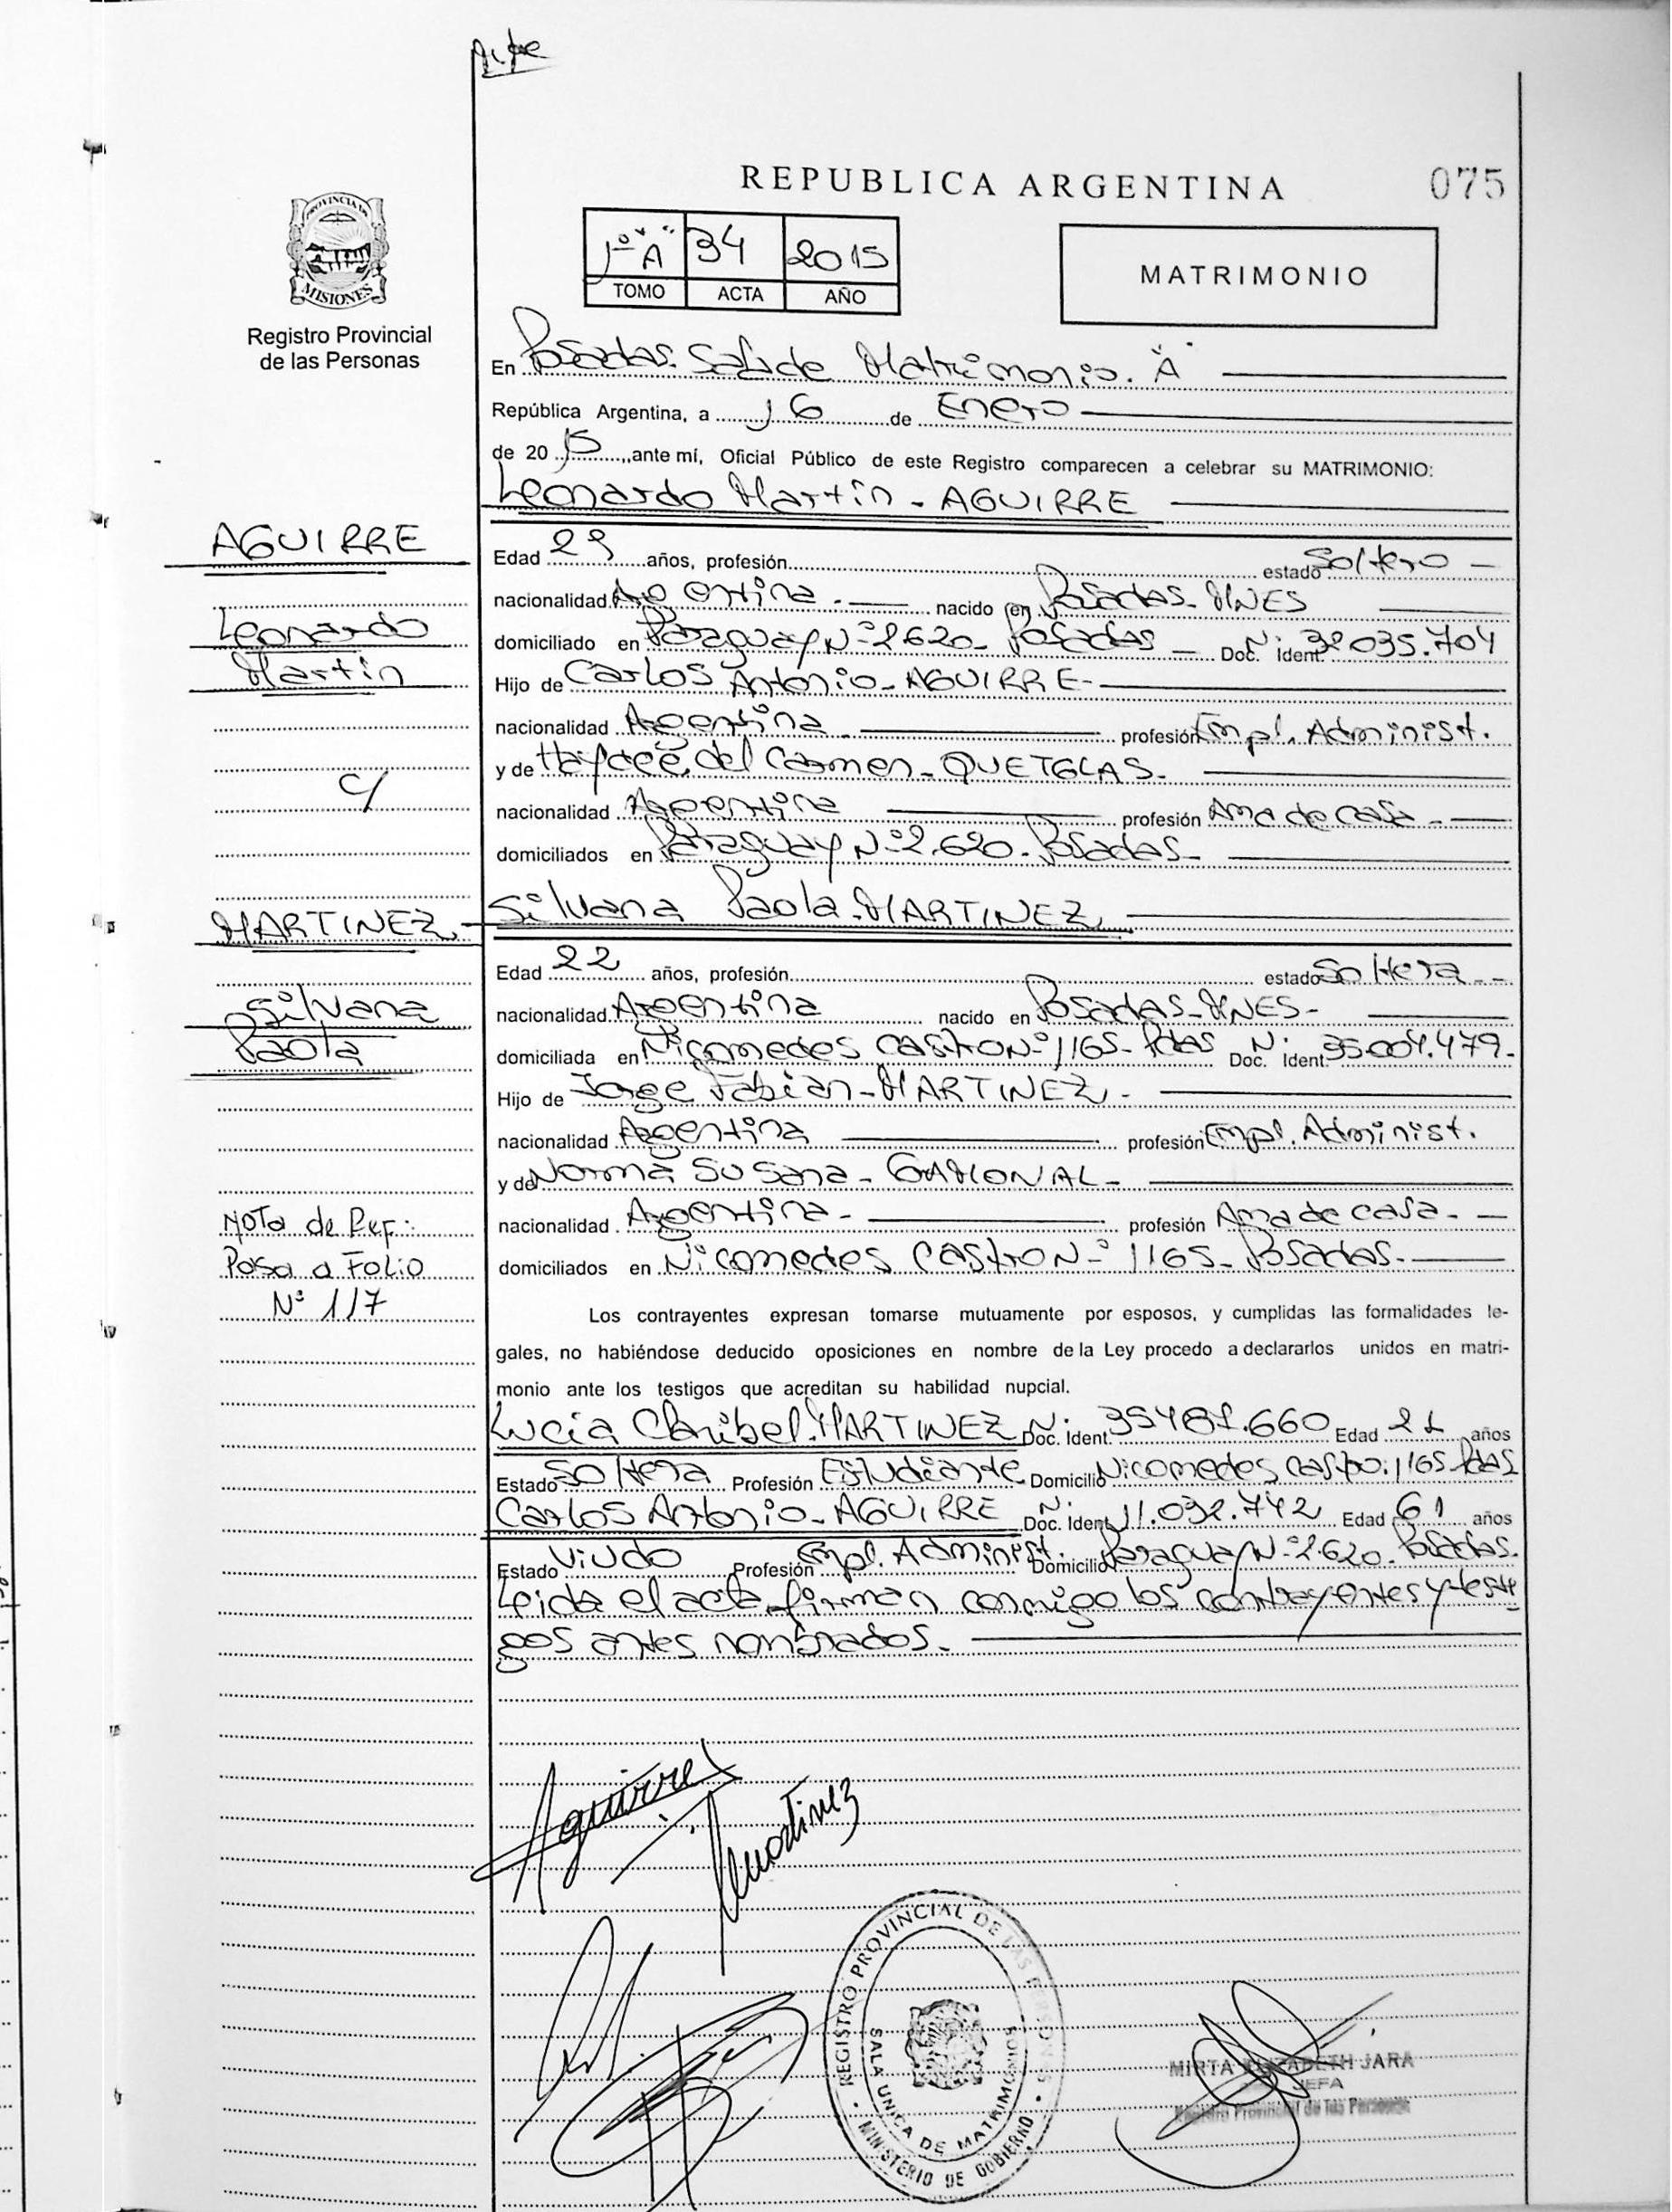 REPUBLICA ARGENTINA
075
PROVINCIA DE
MISIONES
Registro Provincial
de las Personas
1º "A" 34 2015
TOMO ACTA AÑO
MATRIMONIO
En Posadas. Sala de Matrimonio. "A"
República Argentina, a 16 de Enero
de 2015, ante mí, Oficial Público de este Registro comparecen a celebrar su MATRIMONIO:
Leonardo Martín - AGUIRRE
AGUIRRE
Leonardo
Martín
c/
MARTINEZ
Silvana
Paola
Nota de Ref:
Pasa a Folio
Nº 117
Edad 29 años, profesión estado Soltero -
nacionalidad Argentina. nacido en Posadas - MNES
domiciliado en Paraguay Nº 2.620 - Posadas - Doc. Ident. Nº 32.035.704
Hijo de Carlos Antonio - AGUIRRE -
nacionalidad Argentina. profesión Empl. Administ.
y de Haydeé, del Carmen - QUETGLAS -
nacionalidad Argentina profesión Ama de casa -
domiciliados en Paraguay Nº 2.620 - Posadas -
Silvana Paola - MARTINEZ
Edad 22 años, profesión estado Soltera -
nacionalidad Argentina nacido en Posadas - MNES -
domiciliada en Nicomedes Castro Nº 1165 - Pdas Doc. Ident. Nº 35.004.479 -
Hijo de Jorge Fabian - MARTINEZ -
nacionalidad Argentina profesión Empl. Administ.
y de Norma Susana - GAMONAL -
nacionalidad Argentina - profesión Ama de casa -
domiciliados en Nicomedes Castro Nº 1165 - Posadas -
Los contrayentes expresan tomarse mutuamente por esposos, y cumplidas las formalidades le-
gales, no habiéndose deducido oposiciones en nombre de la Ley procedo a declararlos unidos en matri-
monio ante los testigos que acreditan su habilidad nupcial.
Lucia Claribel. MARTINEZ Doc. Ident. Nº 35481.660 Edad 21 años
Estado Soltera Profesión Estudiante Domicilio Nicomedes Castro: 1165 Pdas
Carlos Antonio - AGUIRRE Doc. Ident. Nº 11.032.742 Edad 61 años
Estado Viudo Profesión Empl. Administ. Domicilio Paraguay Nº 2.620 - Posadas.
Leida el acta firman conmigo los contrayentes y testi-
gos antes nombrados -
Aguirre
Martinez
REGISTRO PROVINCIAL DE LAS PERSONAS
SALA UNICA DE MATRIMONIOS
MINISTERIO DE GOBIERNO
MIRTA ELIZABETH JARA
JEFA
Registro Provincial de las Personas